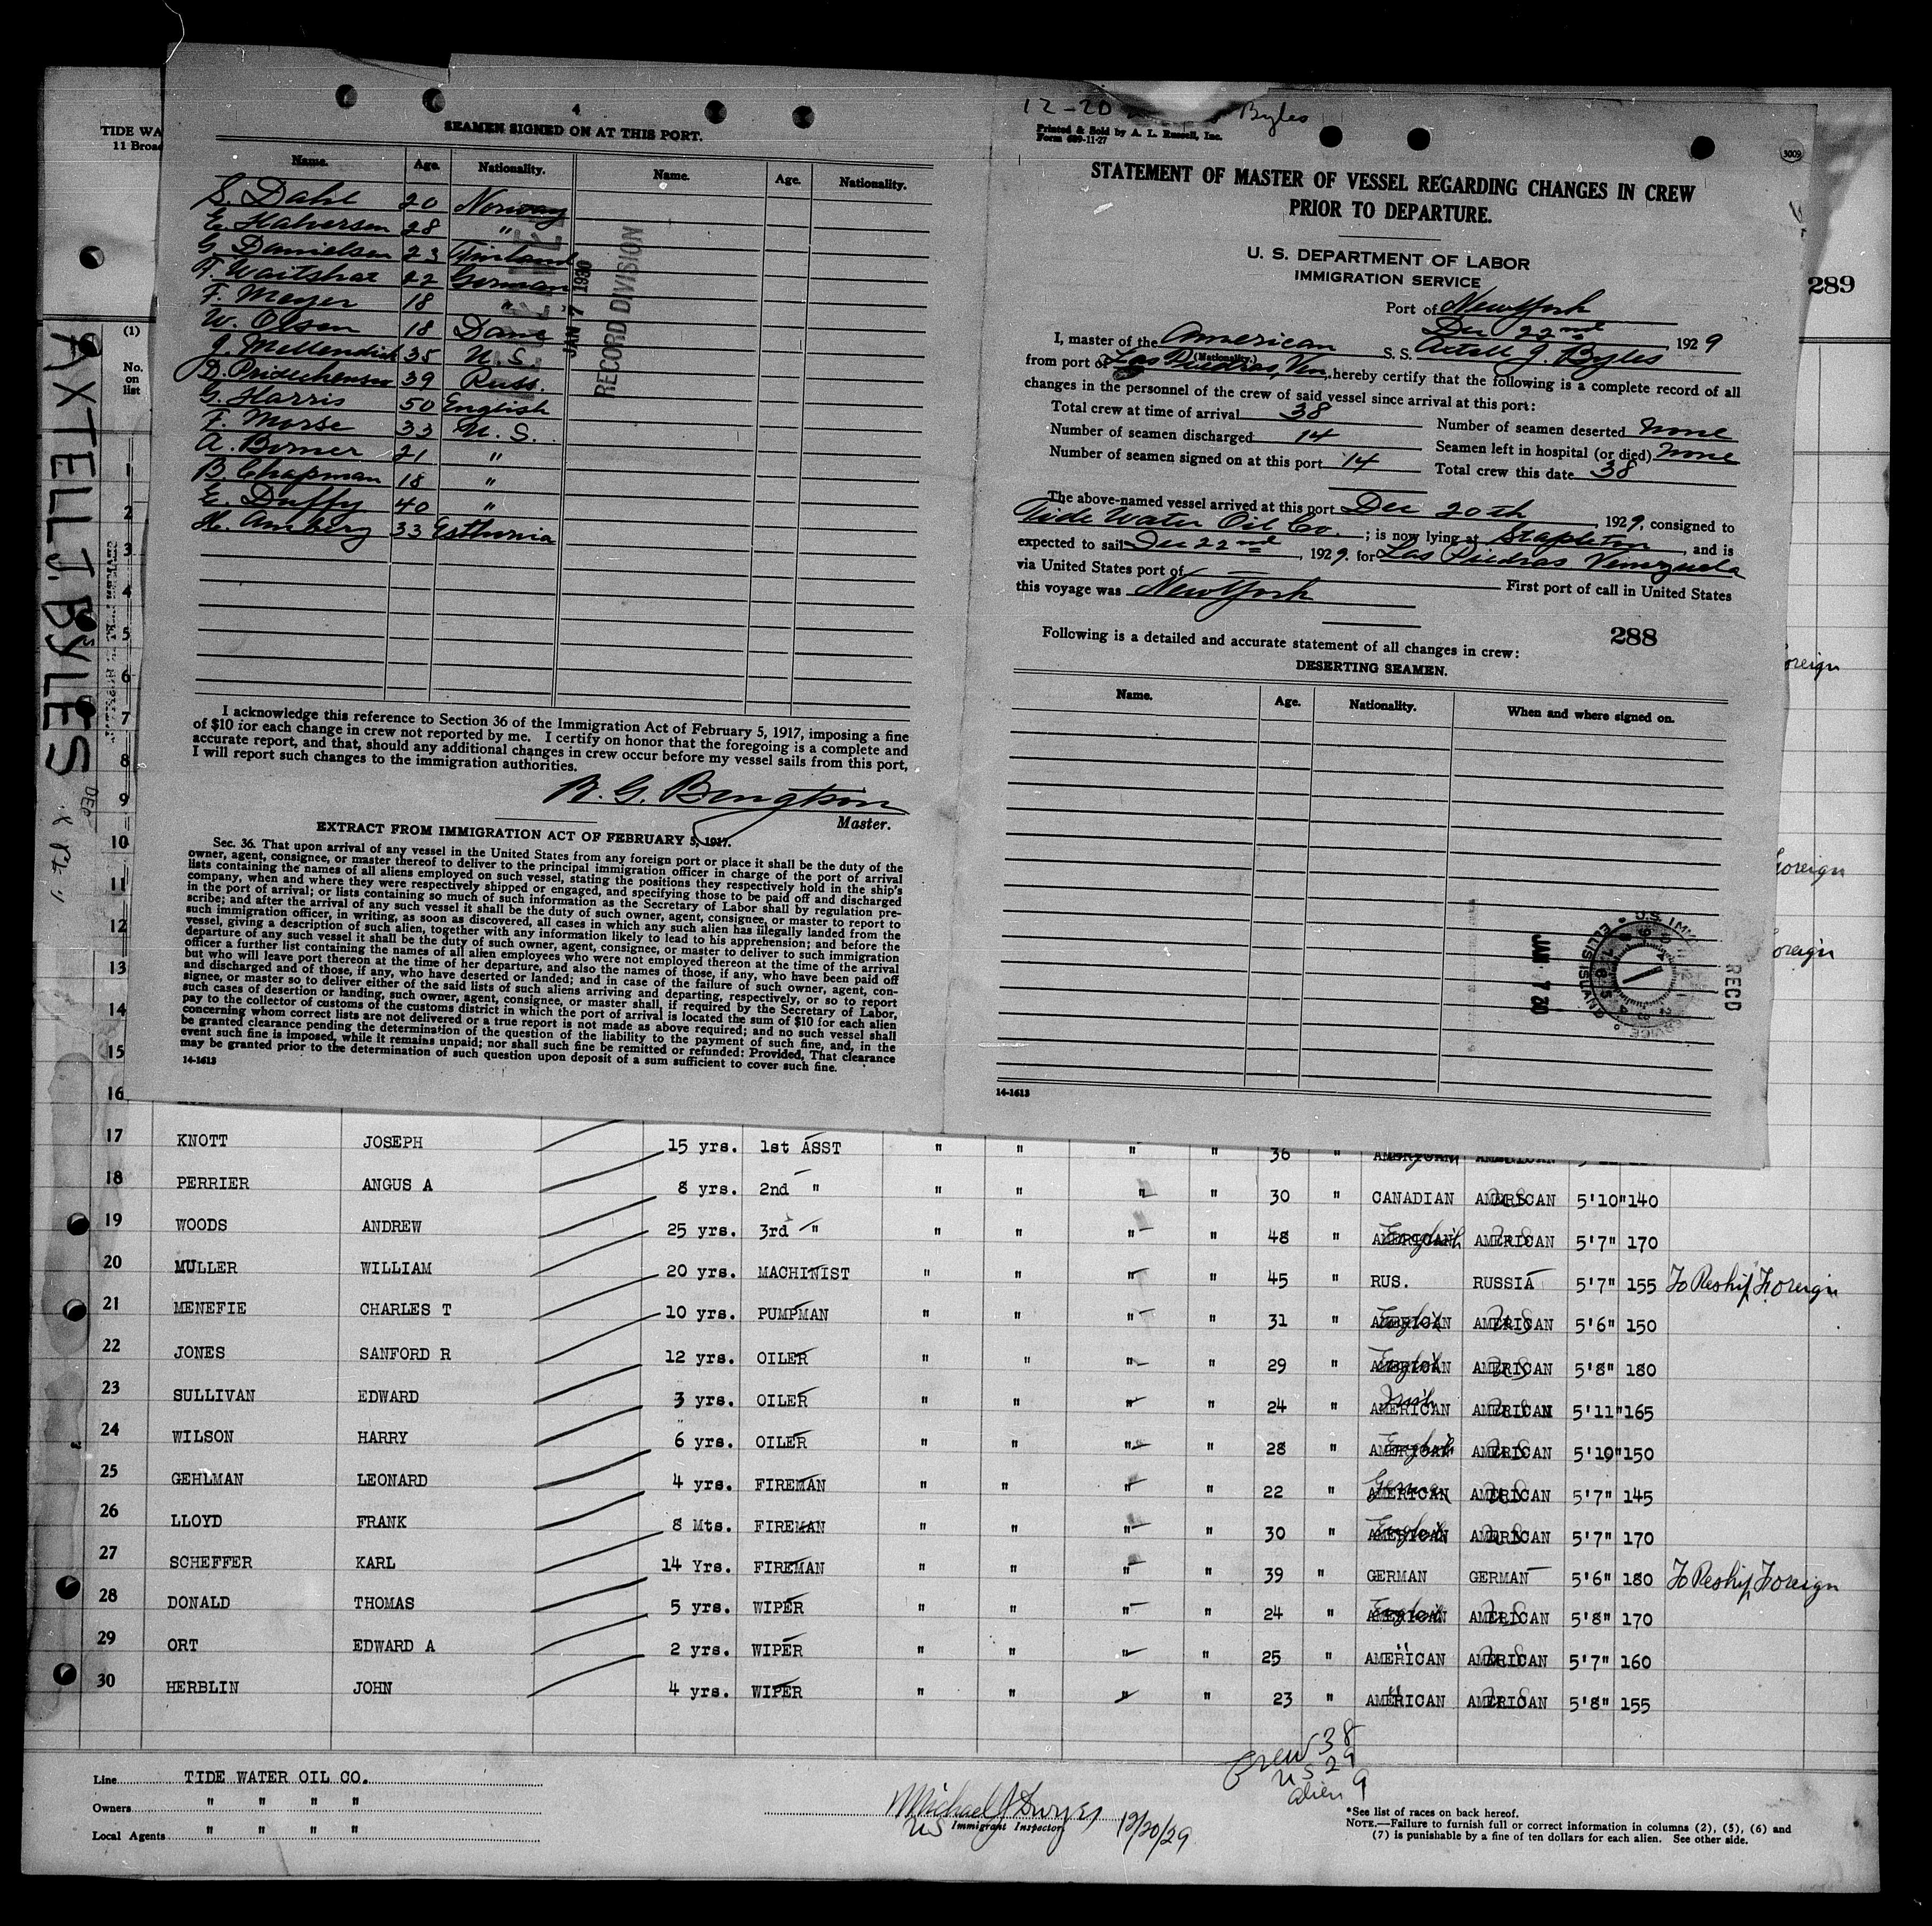 TIDE WA
11 Broad
289
(1)
No.
on
list
AXTELL J. BYLES
DEC
4
SEAMEN SIGNED ON AT THIS PORT.
Name. Age. Nationality. Name. Age. Nationality.
S. Dahl 20 Norway
E. Halversen 28 "
G. Danielsen 23 Finland
F. Waitshat 22 German
F. Meyer 18 "
W. Olsen 18 Dane
J. 35 U.S.
D. 39 Russ.
G. Harris 50 English
F. Morse 33 U.S.
A. Bomer 21 "
B. Chapman 18 "
E. Duffy 40 "
H. Amberg 33 Esthonia
JAN 7 1930
RECORD DIVISION
I acknowledge this reference to Section 36 of the Immigration Act of February 5, 1917, imposing a fine
of $10 for each change in crew not reported by me. I certify on honor that the foregoing is a complete and
accurate report, and that, should any additional changes in crew occur before my vessel sails from this port,
I will report such changes to the immigration authorities.
B. G. Bengtson
Master.
EXTRACT FROM IMMIGRATION ACT OF FEBRUARY 5, 1917.
Sec. 36. That upon arrival of any vessel in the United States from any foreign port or place it shall be the duty of the
owner, agent, consignee, or master thereof to deliver to the principal immigration officer in charge of the port of arrival
lists containing the names of all aliens employed on such vessel, stating the positions they respectively hold in the ship's
company, when and where they were respectively shipped or engaged, and specifying those to be paid off and discharged
in the port of arrival; or lists containing so much of such information as the Secretary of Labor shall by regulation pre-
scribe; and after the arrival of any such vessel it shall be the duty of such owner, agent, consignee, or master to report to
such immigration officer, in writing, as soon as discovered, all cases in which any such alien has illegally landed from the
vessel, giving a description of such alien, together with any information likely to lead to his apprehension; and before the
departure of any such vessel it shall be the duty of such owner, agent, consignee, or master to deliver to such immigration
officer a further list containing the names of all alien employees who were not employed thereon at the time of the arrival
but who will leave port thereon at the time of her departure, and also the names of those, if any, who have been paid off
and discharged and of those, if any, who have deserted or landed; and in case of the failure of such owner, agent, con-
signee, or master so to deliver either of the said lists of such aliens arriving and departing, respectively, or so to report
such cases of desertion or landing, such owner, agent, consignee, or master shall, if required by the Secretary of Labor,
pay to the collector of customs of the customs district in which the port of arrival is located the sum of $10 for each alien
concerning whom correct lists are not delivered or a true report is not made as above required; and no such vessel shall
be granted clearance pending the determination of the question of the liability to the payment of such fine, and, in the
event such fine is imposed, while it remains unpaid; nor shall such fine be remitted or refunded: Provided, That clearance
may be granted prior to the determination of such question upon deposit of a sum sufficient to cover such fine.
14-1613
12-20 Byles
Printed & Sold by A. L. Russell, Inc.
Form 689-11-27
3009
STATEMENT OF MASTER OF VESSEL REGARDING CHANGES IN CREW
PRIOR TO DEPARTURE.
U. S. DEPARTMENT OF LABOR
IMMIGRATION SERVICE
Port of New York
Dec 22nd, 1929
I, master of the American S. S. Axtell J. Byles
(Nationality.)
from port of Las Piedras, Ven, hereby certify that the following is a complete record of all
changes in the personnel of the crew of said vessel since arrival at this port:
Total crew at time of arrival 38 Number of seamen deserted None
Number of seamen discharged 14 Seamen left in hospital (or died) None
Number of seamen signed on at this port 14 Total crew this date 38
The above-named vessel arrived at this port Dec 20th, 1929, consigned to
Tide Water Oil Co.; is now lying at Stapleton, and is
expected to sail Dec 22nd, 1929. for Las Piedras Venezuela
via United States port of — First port of call in United States
this voyage was New York
288
Following is a detailed and accurate statement of all changes in crew:
DESERTING SEAMEN.
Name. Age. Nationality. When and where signed on.
JAN 7
RECD
ELLIS ISLAND
14-1613
oreign
Foreign
oreign
1
2
3
4
5
6
7
8
9
10
11
12
13
14
15
16
17 KNOTT JOSEPH 15 yrs. 1st ASST " " " " 36 " AMERICAN AMERICAN
18 PERRIER ANGUS A 8 yrs. 2nd " " " " " 30 " CANADIAN AMERICAN U.S. 5'10" 140
19 WOODS ANDREW 25 yrs. 3rd " " " " " 48 " AMERICAN English AMERICAN U.S. 5'7" 170
20 MULLER WILLIAM 20 yrs. MACHINIST " " " " 45 " RUS. RUSSIA 5'7" 155 To Reship Foreign
21 MENEFIE CHARLES T 10 yrs. PUMPMAN " " " " 31 " AMERICAN English AMERICAN U.S. 5'6" 150
22 JONES SANFORD R 12 yrs. OILER " " " " 29 " AMERICAN English AMERICAN U.S. 5'8" 180
23 SULLIVAN EDWARD 3 yrs. OILER " " " " 24 " AMERICAN Irish AMERICAN U.S. 5'11" 165
24 WILSON HARRY 6 yrs. OILER " " " " 28 " AMERICAN English AMERICAN U.S. 5'10" 150
25 GEHLMAN LEONARD 4 yrs. FIREMAN " " " " 22 " AMERICAN German AMERICAN U.S. 5'7" 145
26 LLOYD FRANK 8 Mts. FIREMAN " " " " 30 " AMERICAN English AMERICAN U.S. 5'7" 170
27 SCHEFFER KARL 14 Yrs. FIREMAN " " " " 39 " GERMAN GERMAN 5'6" 180 To Reship Foreign
28 DONALD THOMAS 5 yrs. WIPER " " " " 24 " AMERICAN English AMERICAN U.S. 5'8" 170
29 ORT EDWARD A 2 yrs. WIPER " " " " 25 " AMERICAN " AMERICAN U.S. 5'7" 160
30 HERBLIN JOHN 4 yrs. WIPER " " " " 23 " AMERICAN " AMERICAN U.S. 5'8" 155
Crew 38
US 29
alien 9
Line TIDE WATER OIL CO.
Owners " " " "
Local Agents " " " "
Michael J Dwyer
US Immigrant Inspector 12/20/29
*See list of races on back hereof.
NOTE.—Failure to furnish full or correct information in columns (2), (5), (6) and
(7) is punishable by a fine of ten dollars for each alien. See other side.